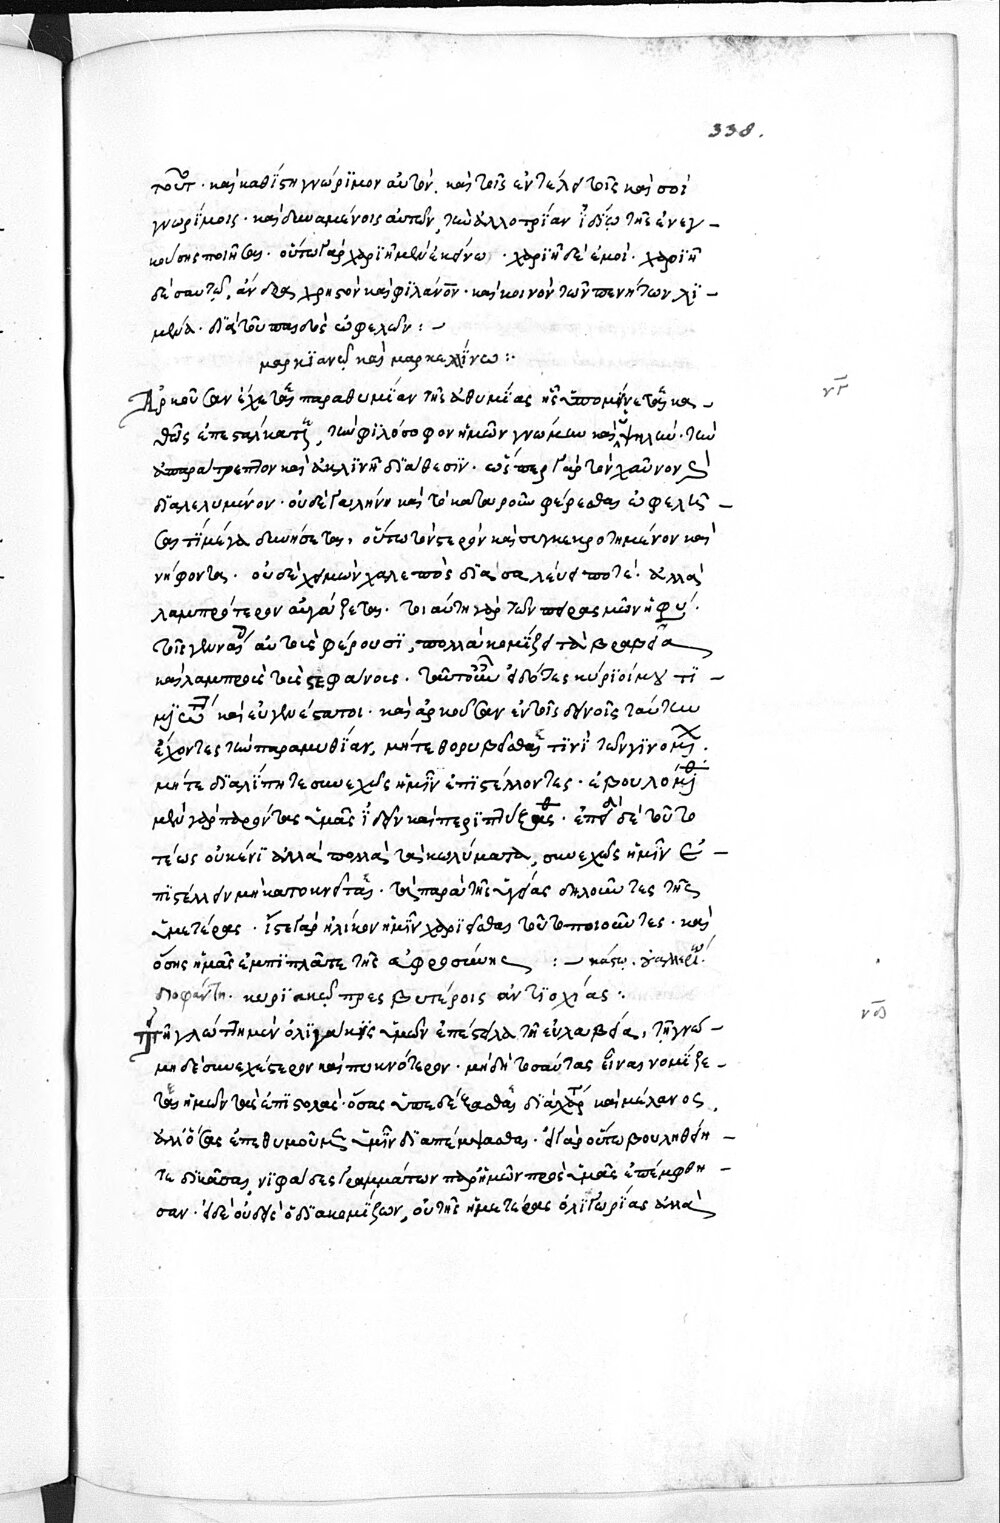 338.
τοῦτ. καὶ καθίστη γνώριμον αὐτόν. καὶ τοῖς ἐν τέλει τοῖς καὶ σοὶ
γνωρίμοις. καὶ δυναμένοις αὐτῶν, τὴν ἀλλοτρίαν ἰδίω τῆς ἐνεγ-
κούσης ποιῆσαι. οὕτω γὰρ χαριῆ μὲν ἐκείνω. χαριῆ δὲ ἐμοί. χαριῆ
δὲ σαυτῶ, ἄνδρα χρηστὸν καὶ φιλάνον. καὶ κοινὸν τῶν πενήτων λι-
μένα. διὰ τοῦ παιδὸς ὠφελῶν:-
μαρκιανῶ καὶ μαρκελλίνω:.
νγ
Ἀρκοῦσαν ἔχετε παραθυμίαν τῆς ἀθυμίας ἧς ὑπομένετε κα-
θὼς ἐπεστάλκατε, τὴν φιλόσοφον ἡμῶν γνώμην καὶ ὑψηλήν. τὴν
ἀπαράτρεπτον καὶ ἀκλινῆ διάθεσιν. ὥσπερ γὰρ τὸν χαῦνον καὶ
διαλελυμένον. οὐδὲ γαλήνη καὶ τὸ κατὰ ροῦν φέρεσθαι ὠφελῆ-
σαί τι μέγα δυνήσεται, οὕτω τὸν στερρὸν καὶ συγκεκροτημένον καὶ
νήφοντα. οὐδὲ χειμὼν χαλεπὸς διασαλεύει ποτέ. ἀλλὰ
λαμπρότερον ἐργάζεται. τοιαύτη γὰρ τῶν πειρασμῶν ἡ φύ.
τοῖς γενναί αὐτοὺς φέρουσι, πολλὰ κομίζει τὰ βραβεῖα
καὶ λαμπροὺς τοὺς στεφάνους. ταῦτ οὖν εἰδότες κύριοί μου τι-
μιώτ καὶ εὐγενέστατοι. καὶ ἀρκοῦσαν ἐν τοῖς δεινοῖς ταύτην
ἔχοντες τὴν παραμυθίαν, μήτε θορυβεῖσθαι τινὶ τῶν γινομ.
μήτε διαλίπητε συνεχῶς ἡμῖν ἐπιστέλλοντες. ἐβουλόμ
μὲν γὰρ παρόντας ὑμᾶς ἰδεῖν καὶ περιπτύξασθ. ἐπεὶ δὲ τοῦτο
τέως οὐκ ἔνι ἀλλὰ πολλὰ τὰ κωλύματα, συνεχῶς ἡμῖν ἐ-
πιστέλλειν μὴ κατοκνεῖτε. τὰ παρὰ τῆς ὑγείας δηλοῦντες τῆς
ὑμετέρας. ἴστε γὰρ ἡλίκον ἡμῖν χαριεῖσθαι τοῦτο ποιοῦντες. καὶ
ὅσης ἡμᾶς ἐμπιπλᾶτε τῆς εὐφροσύνης :- κάστω. οὐαλλερί.
διοφάντη. κυριακῶ πρεσβυτέροις ἀντιοχίας:.
νδ
Τῆ γλώττη μὲν ὀλιγάκις ὑμῶν ἐπέστειλα τῆ εὐλαβεία, τῆ γνώ-
μη δὲ συνεχέστερον καὶ πυκνότερον. μὴ δὴ τοσαύτας εἶναι νομίζε-
τε ἡμῶν τὰς ἐπιστολὰς. ὅσας ὑπεδέξασθε διὰ χάρτ καὶ μέλανος,
ἀλλ' ὅσας ἐπεθυμοῦμεν ὑμῖν διαπέμψασθαι. εἰ γὰρ οὕτω βουληθείη-
τε δικάσαι, νιφάδες γραμμάτων παρ' ἡμῶν πρὸς ὑμᾶς ἐπέμφθη-
σαν. εἰ δὲ οὐδεὶς ὁ διακομίζων, οὐ τῆς ἡμετέρας ὀλιγωρίας ἀλλὰ